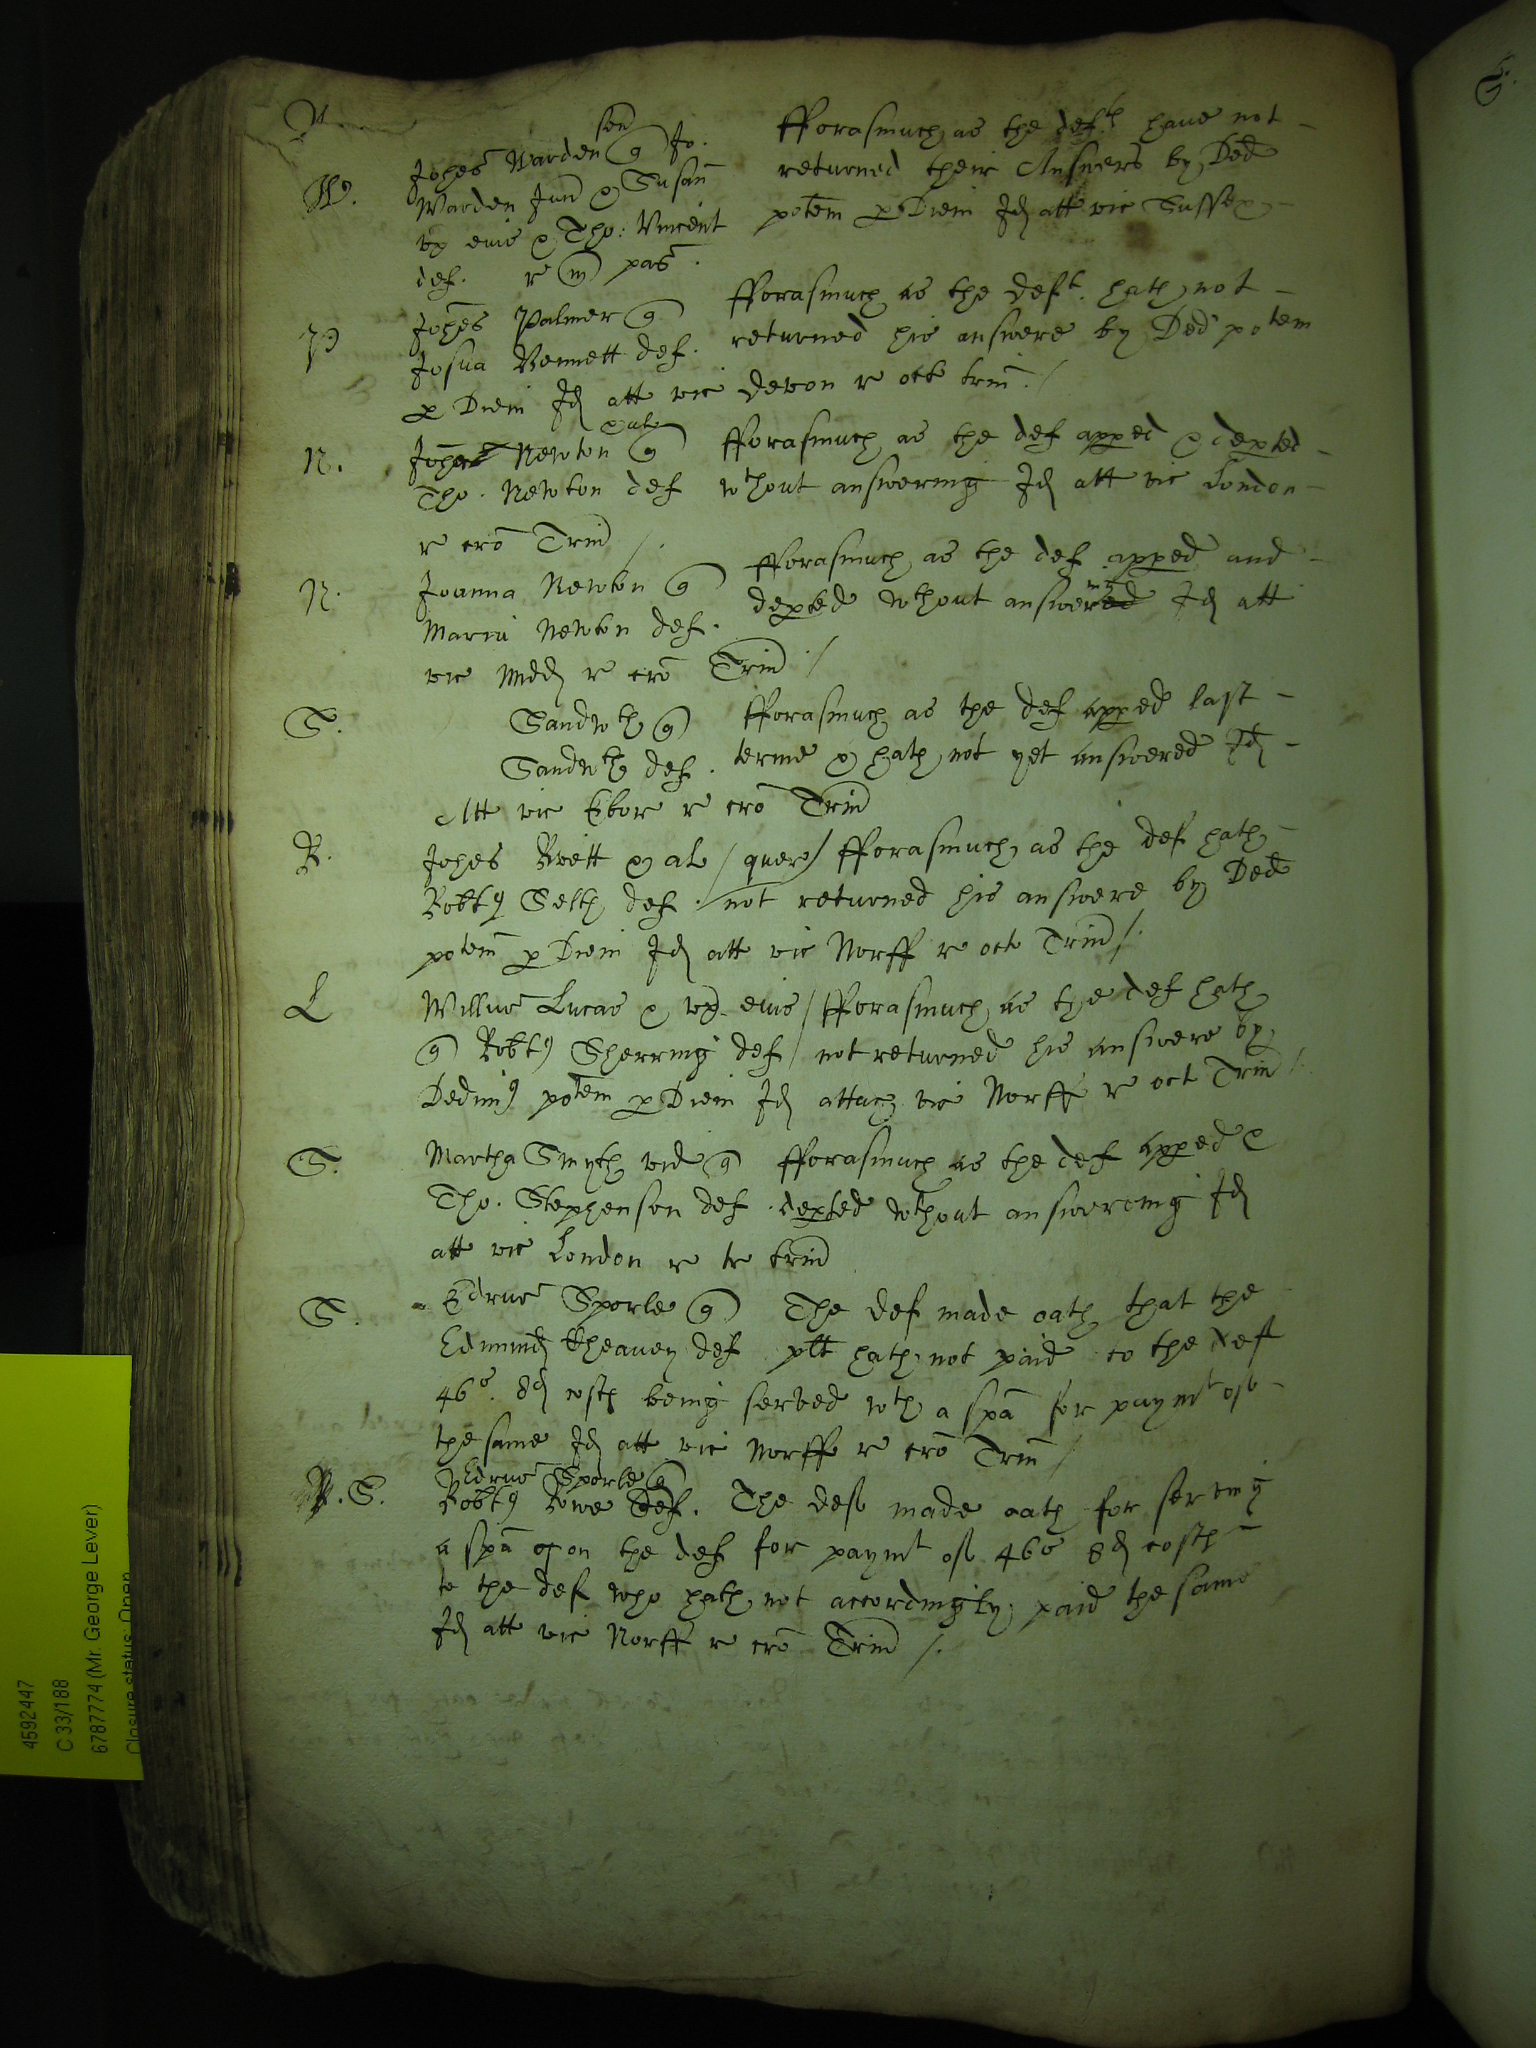 W. Johes Warden sen q Jo. fforasmuch as the defts have not
Warden Jun & Susan returned their Answers by Ded
ux eius & Tho: Vincent potem p Diem Id att vic Sussex
def. r m pas.
P Johes Palmer q fforasmuch as the deft. hath not
Josua Bennett def. returned his answere by Ded potem
p Diem Id att vic devon r octo trin
N. Newton & al q fforasmuch as the def apped & depted
Tho. Newton def wthout answering Id att vic London
r cro Trin
N. Joanna Newton q fforasmuch as the def apped and
Maria Newton def. depted wthout answering Id att
vic Midd r cro Trin
S. Sandwth q fforasmuch as the def apped last
Sandwth def. terme & hath not yet answered Id
Att vic Ebor r cro Trin
R. Johes Rwett & al quer fforasmuch as the def hath
Robtq Selth def. not returned his answere by Ded
potem p Diem Id att vic Norff r octo Trin
L Willus Lucas & ux eius fforasmuch as the def hath
q Robtq Sherring def not returned his answere by
Dedimq potem p Diem Id attach vic Norff r oct Trin
S. Martha Smyth vid q fforasmuch as the def apped &
Tho. Stephenson def. depted wthout answereing Id
att vic London r tr trin
S. Edrus Sporle q The def made oath that the
Edmund Theavey def plt hath not paid to the def
46s. 8d costs being served wth a spa for paymt of
the same Id att vic Norff r cro Trin
S. Edrus Sporle q
Robtq Rowe def. The def made oath for serving
a spa upon the def for paymt of 46s 8d costs
to the def who hath not accordingly paid the same
Id att vic Norff r cro Trin
S.
4592447
C 33/188
6787774 (Mr. George Lever)
Closure status: Open